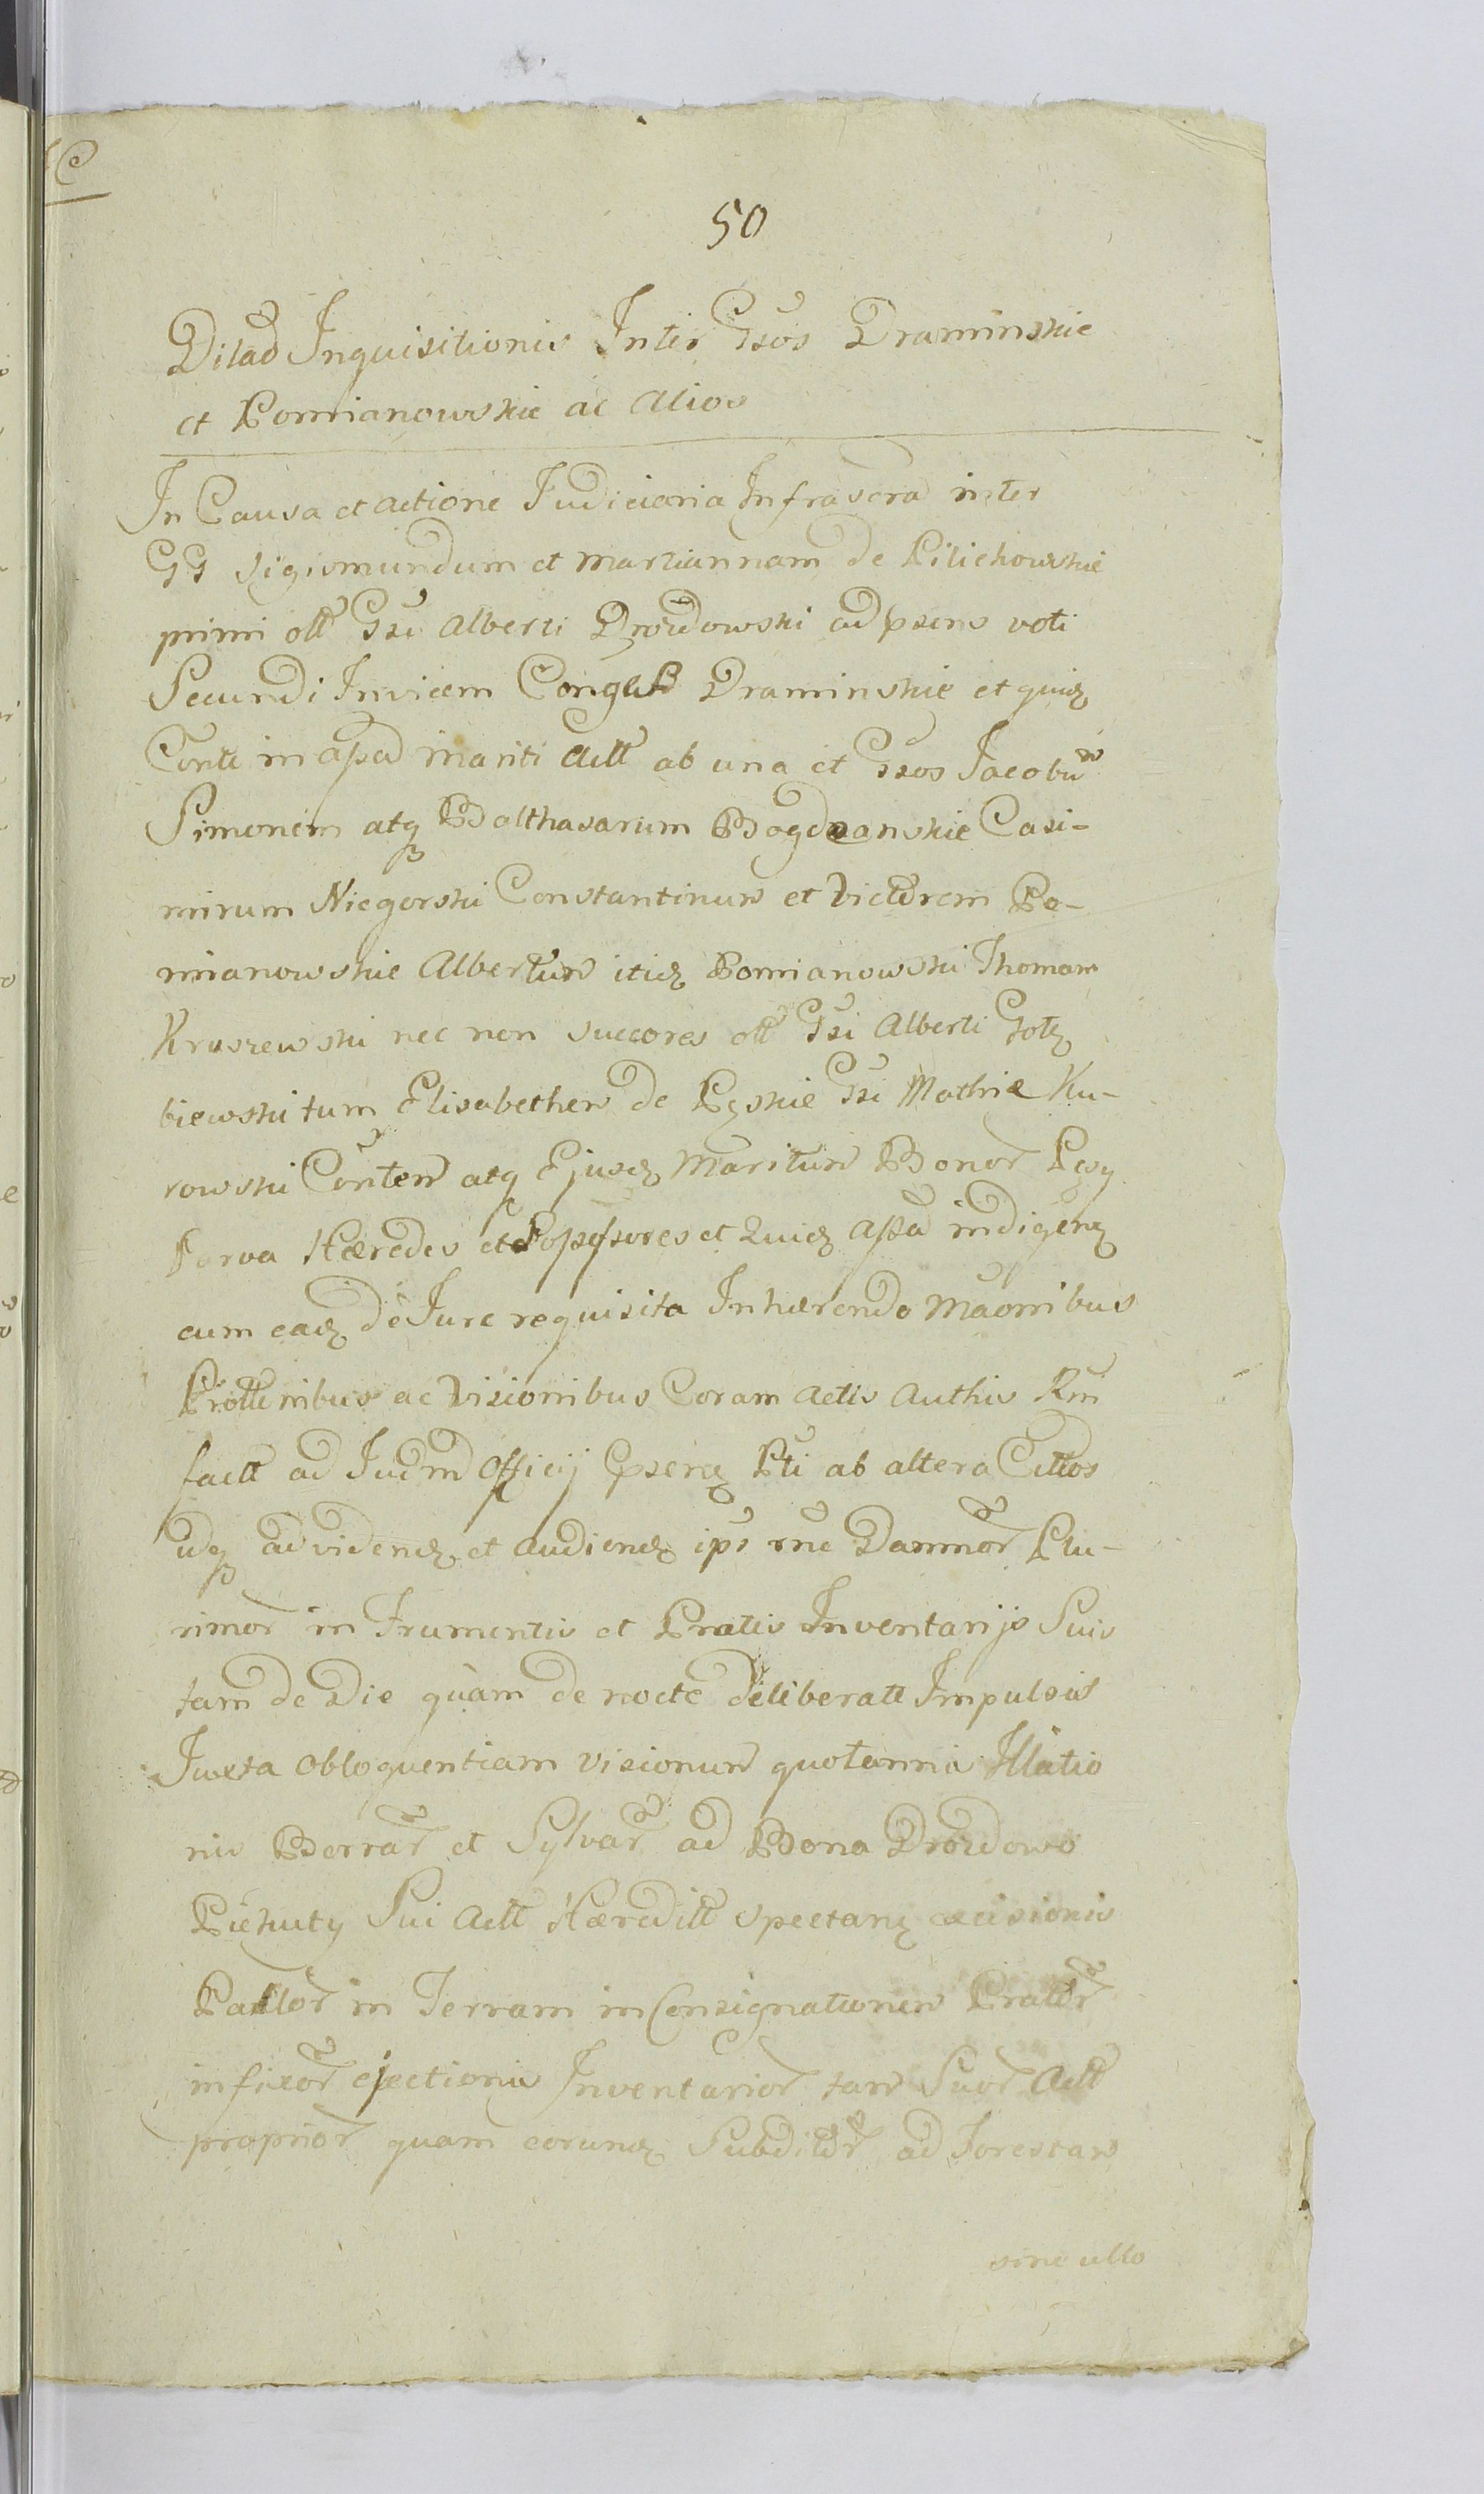 50
Dilāō Inquisitionis Inter Gsos Draminskie
et Pomianowskie ac Alios
In Causa et actione Judiciaria Infrascra inter
GG Sigismundum et Martiannam de Pilichowskie
primi oll Gsi Alberti Drozdowski ad psens voti
Secundi Invicem Draminskie et quidz
Contl in apa mariti Actt ab una et Gsos Jacobum
Simonem atq Balthasarum Bogdzanskie Casi-
mirum Niegorski Constantinum et Victorem Po-
mianowskie Albertum itidz Pomianowski Thomam
Kruszewski nec non succores oll Gsi Alberti Gołę
biewski tum Elisabetham de Pęskie Gsi Mathiæ Ku-
rowski Contem atq Ejusdz Maritum Bonor Pęsy
Parva Hæredes et Possessores et Quidz Assa indigenz
cum eadz de Jure requisita Inhærendo Maōnibus
ac Visionibus Coram Actis Authis Rm
factt ad Judm Officij Pti ab altera Cittos
idq ad videndz et audiendz ips rne Damnor Plu-
rimor in Frumentis et Pratis Inventarijs Suis
tam de Die quam de nocte deliberatt Impulsis
Juxta obloquentiam visionum quotannis Illatio
nis Borrar et Sylvar ad Bona Drozdowo
Piehuty Sui Actt Hæreditt spectanz excisionis
Pallor in Terram in Consignationem Prator
infixor ejectionis Inventarior tam Suor Actt
proprior quam eorundz Subditor ad Forestam
sine ullo